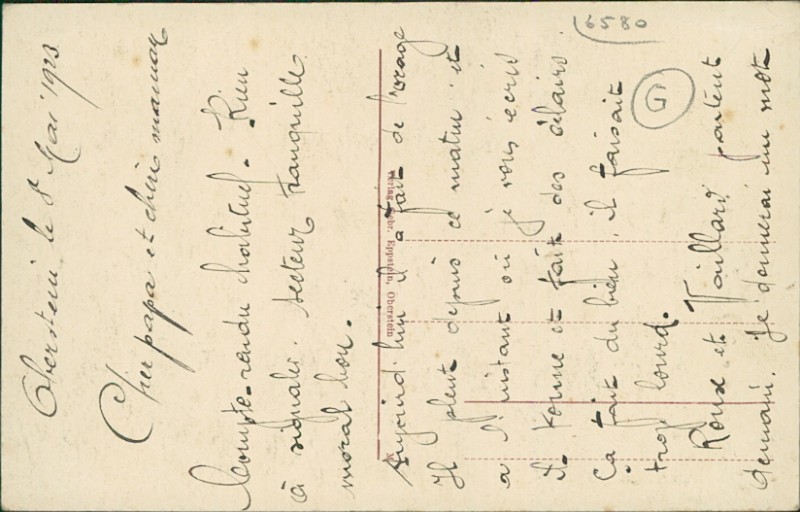 Oberstein le 8 Mai 1923
Cher papa et chère maman
Compte-rendu habituel. Rien
à signaler. Secteur tranquille
moral bon.
Aujourd'hui il a fait de l'orage
Il pleut depuis ce matin et
a l'instant où je vous écris
il tonne et fait des éclairs.
Ça fait du bien, il faisait
trop lourd.
Roux et Vaillard partent
demain. Je donnerai un mot
Verlag Gebr. Eppstein, Oberstein
6580